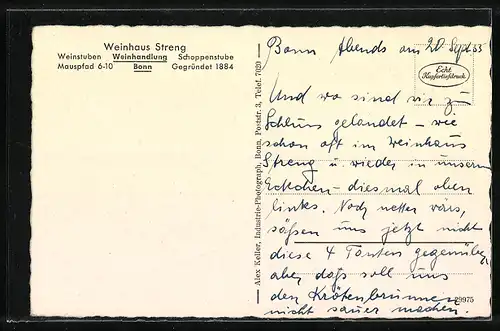 Weinhaus Streng
Weinstuben Weinhandlung Schoppenstube
Mauspfad 6-10 Bonn Gegründet 1884
Alex Keller, Industrie-Photograph, Bonn, Poststr. 3, Telef. 7020
Echt
Kupfertiefdruck
Bonn Abends am 20 Sept 53
Und wo sind wir zu
Schluss gelandet – wie
schon oft im Weinhaus
Streng u. wieder in unserm
Eckchen – diesmal oben
links. Noch netter wärs,
säßen uns jetzt nicht
diese 4 Tanten gegenüber,
aber daß soll uns
den Krötenbrunnen
nicht sauer machen.
29975